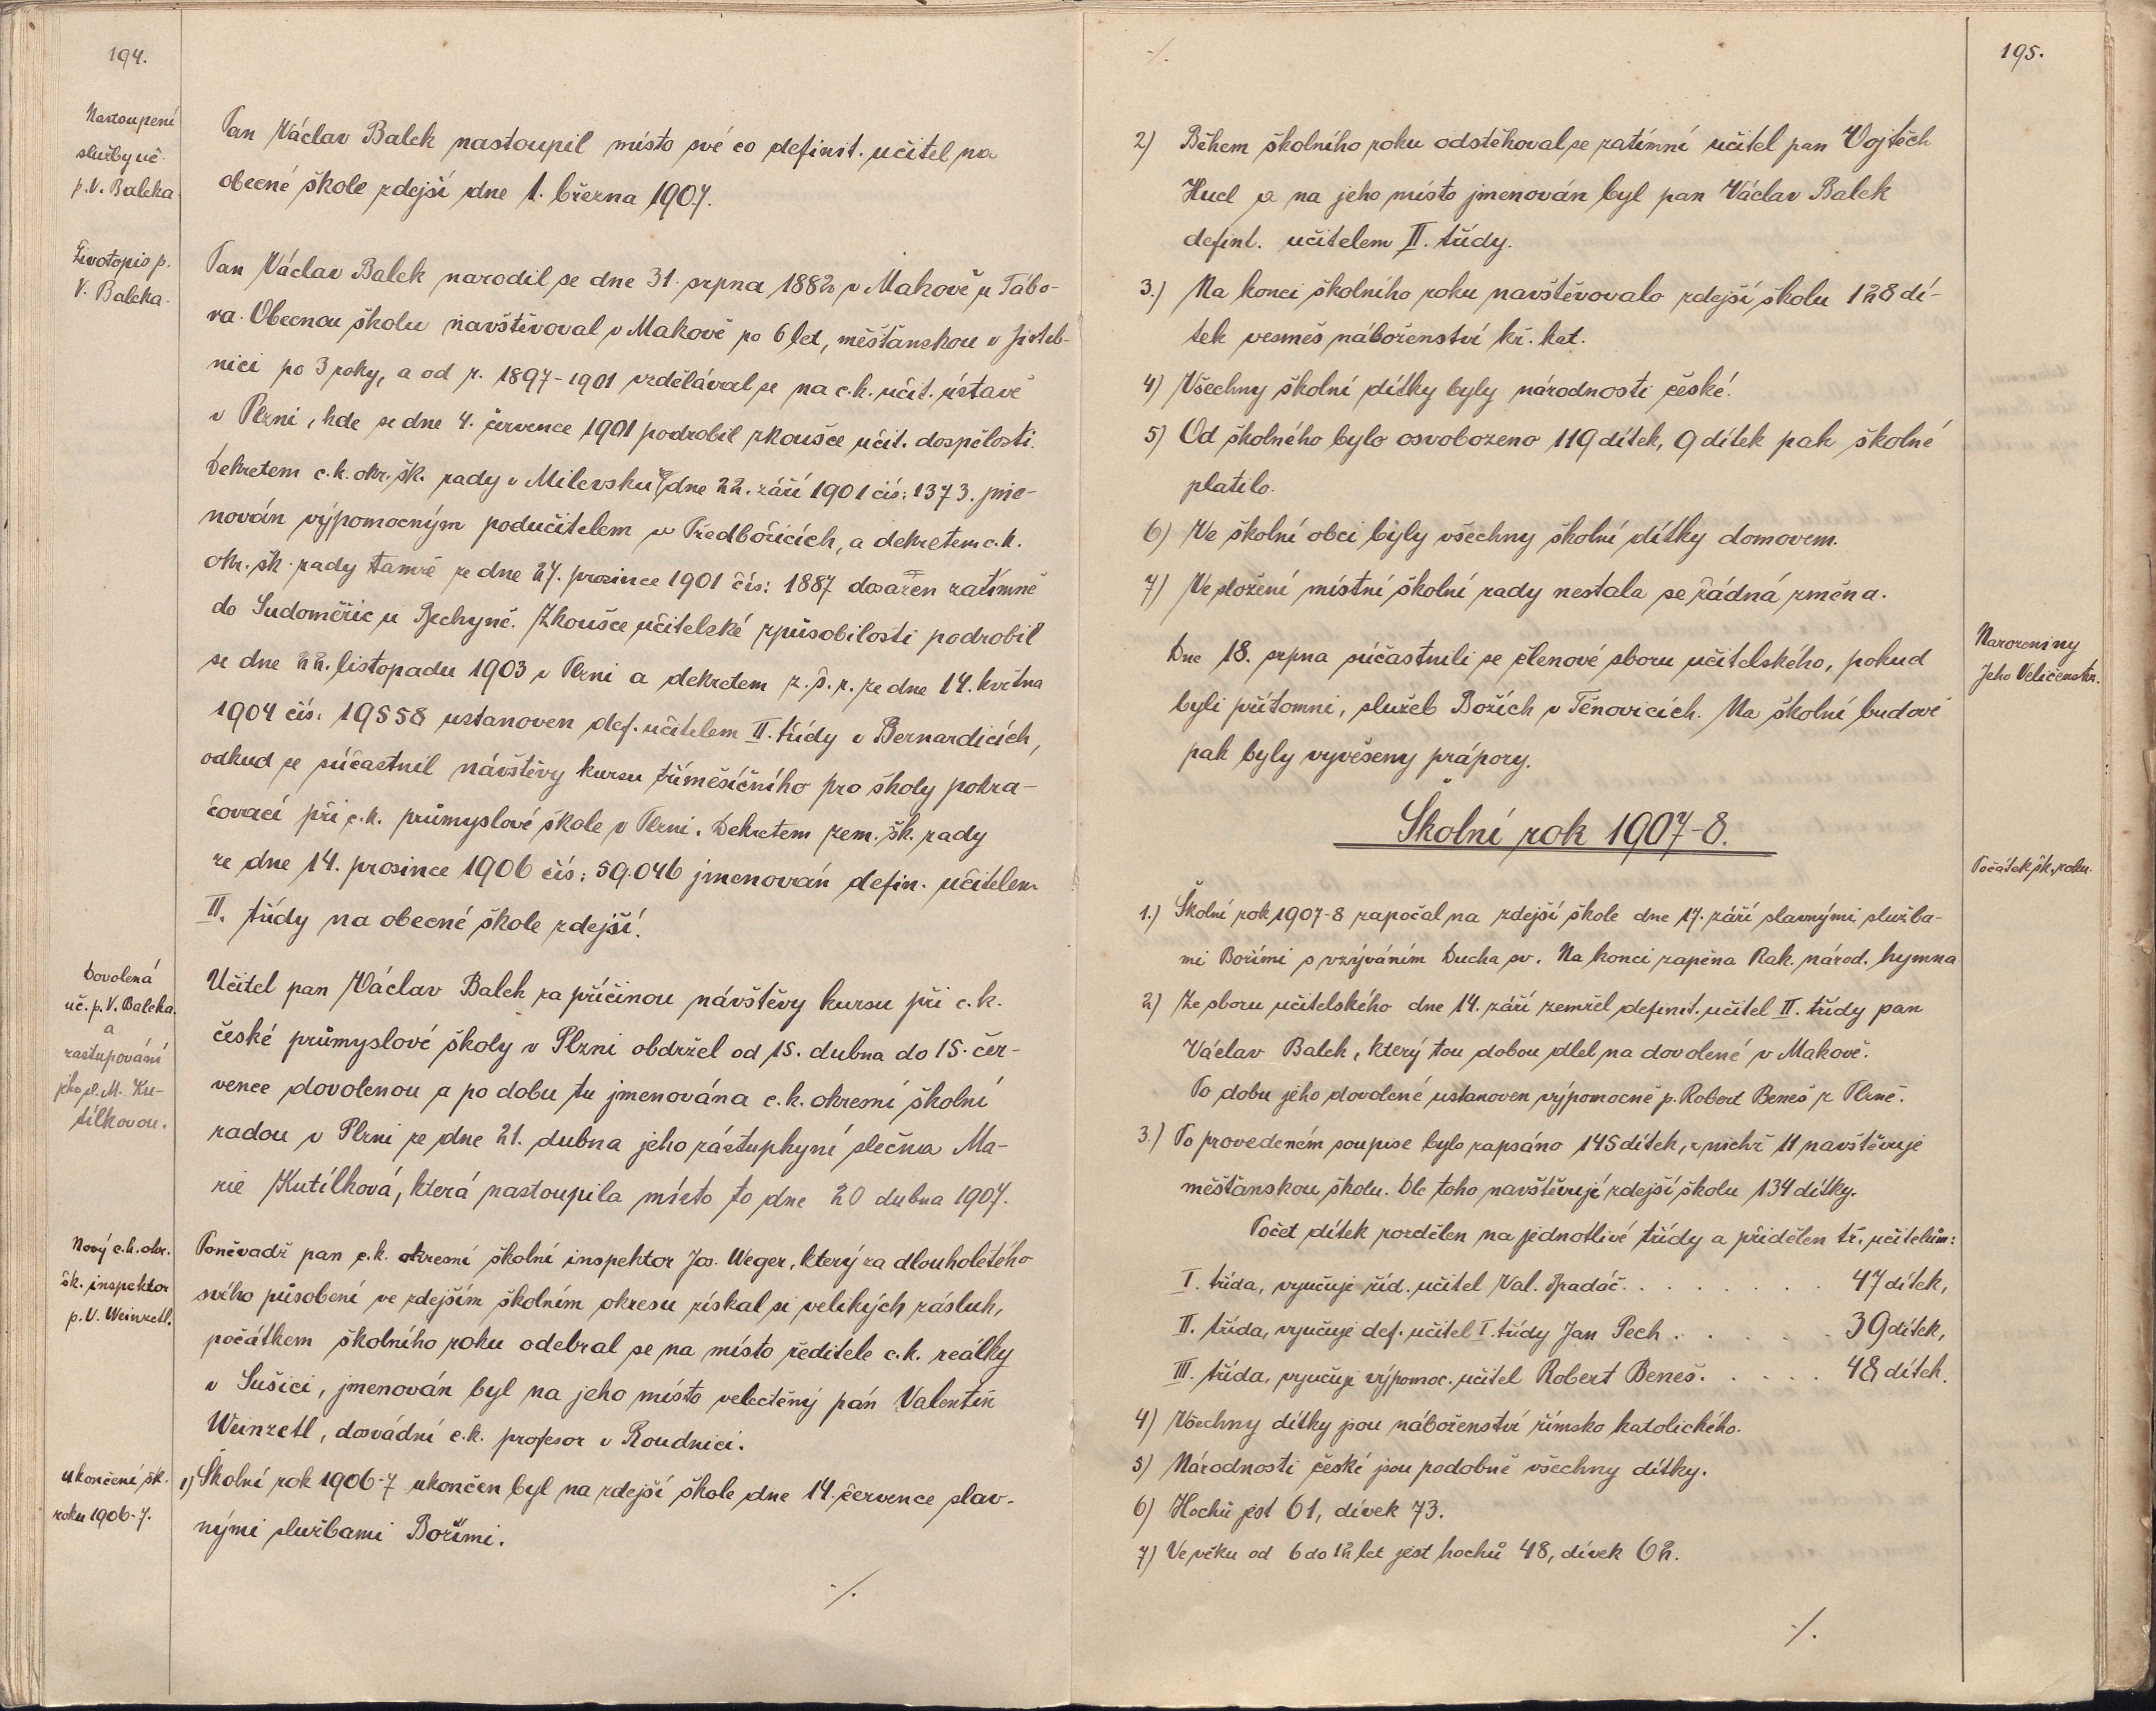 194.
Nastoupení
služby uč.
p. V. Balcka.
Pan Václav Balek nastoupil místo své co definit. učitel na
obecné škole zdejší dne 1. března 1907.
Životopis p.
V. Balcka.
Pan Václav Balek narodil se dne 31. srpna 1882 v Makově u Tábo-
ra. Obecnou školu navštěvoval v Makově po 6 let, měšťanskou v Jisteb-
nici po 3 roky, a od r. 1897-1901 vzdělával se na c. k. učit. ústavě
v Plzni, kde se dne 4. července 1901 podrobil zkoušce učit. dospělosti.
Dekretem c. k. okr. šk. rady v Milevsku ze dne 22. září 1901 čís: 1373. jme-
nován výpomocným podučitelem v Předbořicích, a dekretem c. k.
okr. šk. rady tamže ze dne 27. prosince 1901 čís: 1887 dosazen zatímně
do Sudoměřic u Bechyně. Zkoušce učitelské způsobilosti podrobil
se dne 22. listopadu 1903 v Plzni a dekretem z. š. r. ze dne 14. května
1904 čís: 19558 ustanoven def. učitelem II. třídy v Bernardicích,
odkud se súčastnil návštěvy kursu tříměsíčního pro školy pokra-
čovací při c. k. průmyslové škole v Plzni. Dekretem zem. šk. rady
ze dne 14. prosince 1906 čís: 59.046 jmenován defin. učitelem
II. třídy na obecné škole zdejší.
Dovolená
uč. p. V. Balcka.
a
zastupování
jeho sl. M. Ku-
tílkovou.
Učitel pan Václav Balek za příčinou návštěvy kursu při c. k.
české průmyslové školy v Plzni obdržel od 15. dubna do 15. čer-
vence dovolenou a po dobu tu jmenována c. k. okresní školní
radou v Plzni ze dne 21. dubna jeho zástupkyní slečna Ma-
rie Kutílková, která nastoupila místo to dne 20 dubna 1907.
Nový c. k. okr.
šk. inspektor
p. V. Weinzetl.
Poněvadž pan c. k. okresní školní inspektor Jos. Weger, který za dlouholetého
svého působení ve zdejším školním okresu získal si velikých zásluh,
počátkem školního roku odebral se na místo ředitele c. k. reálky
v Sušici, jmenován byl na jeho místo velectěný pán Valentin
Weinzetl, dosvádní c. k. profesor v Roudnici.
Ukončení šk.
roku 1906-7.
1) Školní rok 1906-7 ukončen byl na zdejší škole dne 14. července slav-
nými službami Božími.
./.
195.
./.
2) Během školního roku odstěhoval se zatímní učitel pan Vojtěch
Hucl a na jeho místo jmenován byl pan Václav Balek
defint. učitelem II. třídy.
3.) Na konci školního roku navštěvovalo zdejší školu 128 dí-
tek vesměs náboženství kř. kat.
4) Všechny školní dítky byly národnosti české.
5) Od školného bylo osvobozeno 119 dítek, 9 dítek pak školné
platilo.
6) Ve školní obci byly všechny školní dítky domovem.
7) Ve složení místní školní rady nestala se žádná změna.
Narozeniny
Jeho Veličenstv.
Dne 18. srpna súčastnili se členové sboru učitelského, pokud
byli přítomni, služeb Božích v Těnovicích. Na školní budově
pak byly vyvěšeny prápory.
Školní rok 1907-8.
Počátek šk. roku.
1.) Školní rok 1907-8 započal na zdejší škole dne 17. září slavnými služba-
mi Božími s vzýváním Ducha sv. Na konci zapěna Rak. národ. hymna
2) Ze sboru učitelského dne 14. září zemřel definit. učitel II. třídy pan
Václav Balek, který tou dobou dlel na dovolené v Makově.
Po dobu jeho dovolené ustanoven výpomocně p. Robert Beneš z Plzně.
3.) Po provedeném soupise bylo zapsáno 145 dítek, z nichž 11 navštěvuje
měšťanskou školu. Dle toho navštěvují zdejší školu 134 dítky.
Počet dítek rozdělen na jednotlivé třídy a přidělen tř. učitelům:
I. třída, vyučuje říd. učitel Val. Spadáč. . . . . . . . 47 dítek,
II. třída, vyučuje def. učitel I. třídy Jan Pech . . . . . . 39 dítek,
III. třída, vyučuje výpomoc. učitel Robert Beneš. . . . . . 48 dítek.
4) Všechny dítky jsou náboženství římsko katolického.
5) Národnosti české jsou podobně všechny dítky.
6) Hochů jest 61, dívek 73.
7) Ve věku od 6 do 12 let jest hochů 48, dívek 62.
./.